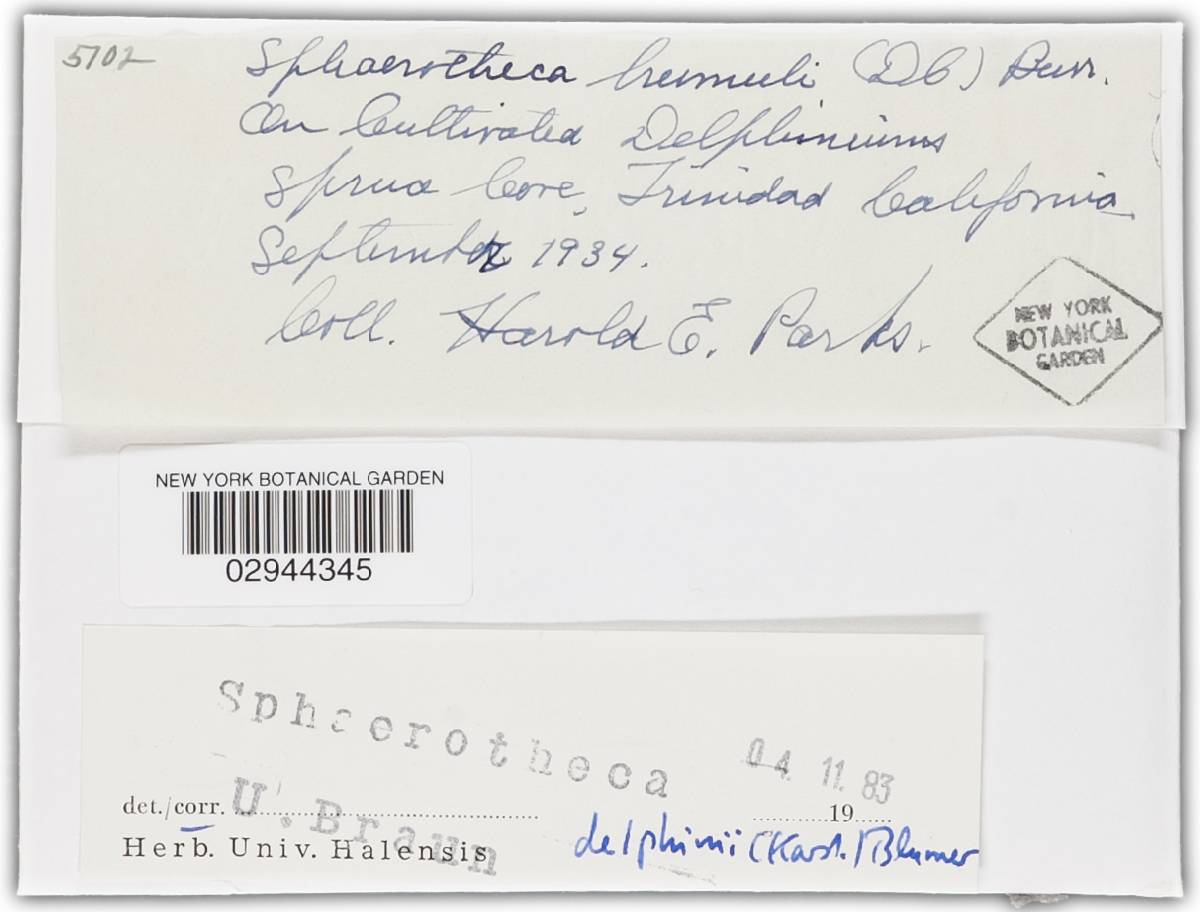 5102
Sphaerotheca humuli (DC) Burr.
On Cultivated Delphiniums
Spruce Cove, Trinidad California
September 1934.
Coll. Harold E. Parks.
NEW YORK
BOTANICAL
GARDEN
NEW YORK BOTANICAL GARDEN
02944345
Sphaerotheca
04 11 83
det./corr. U. Braun 19
Herb. Univ. Halensis
delphinii (Karst.) Blumer